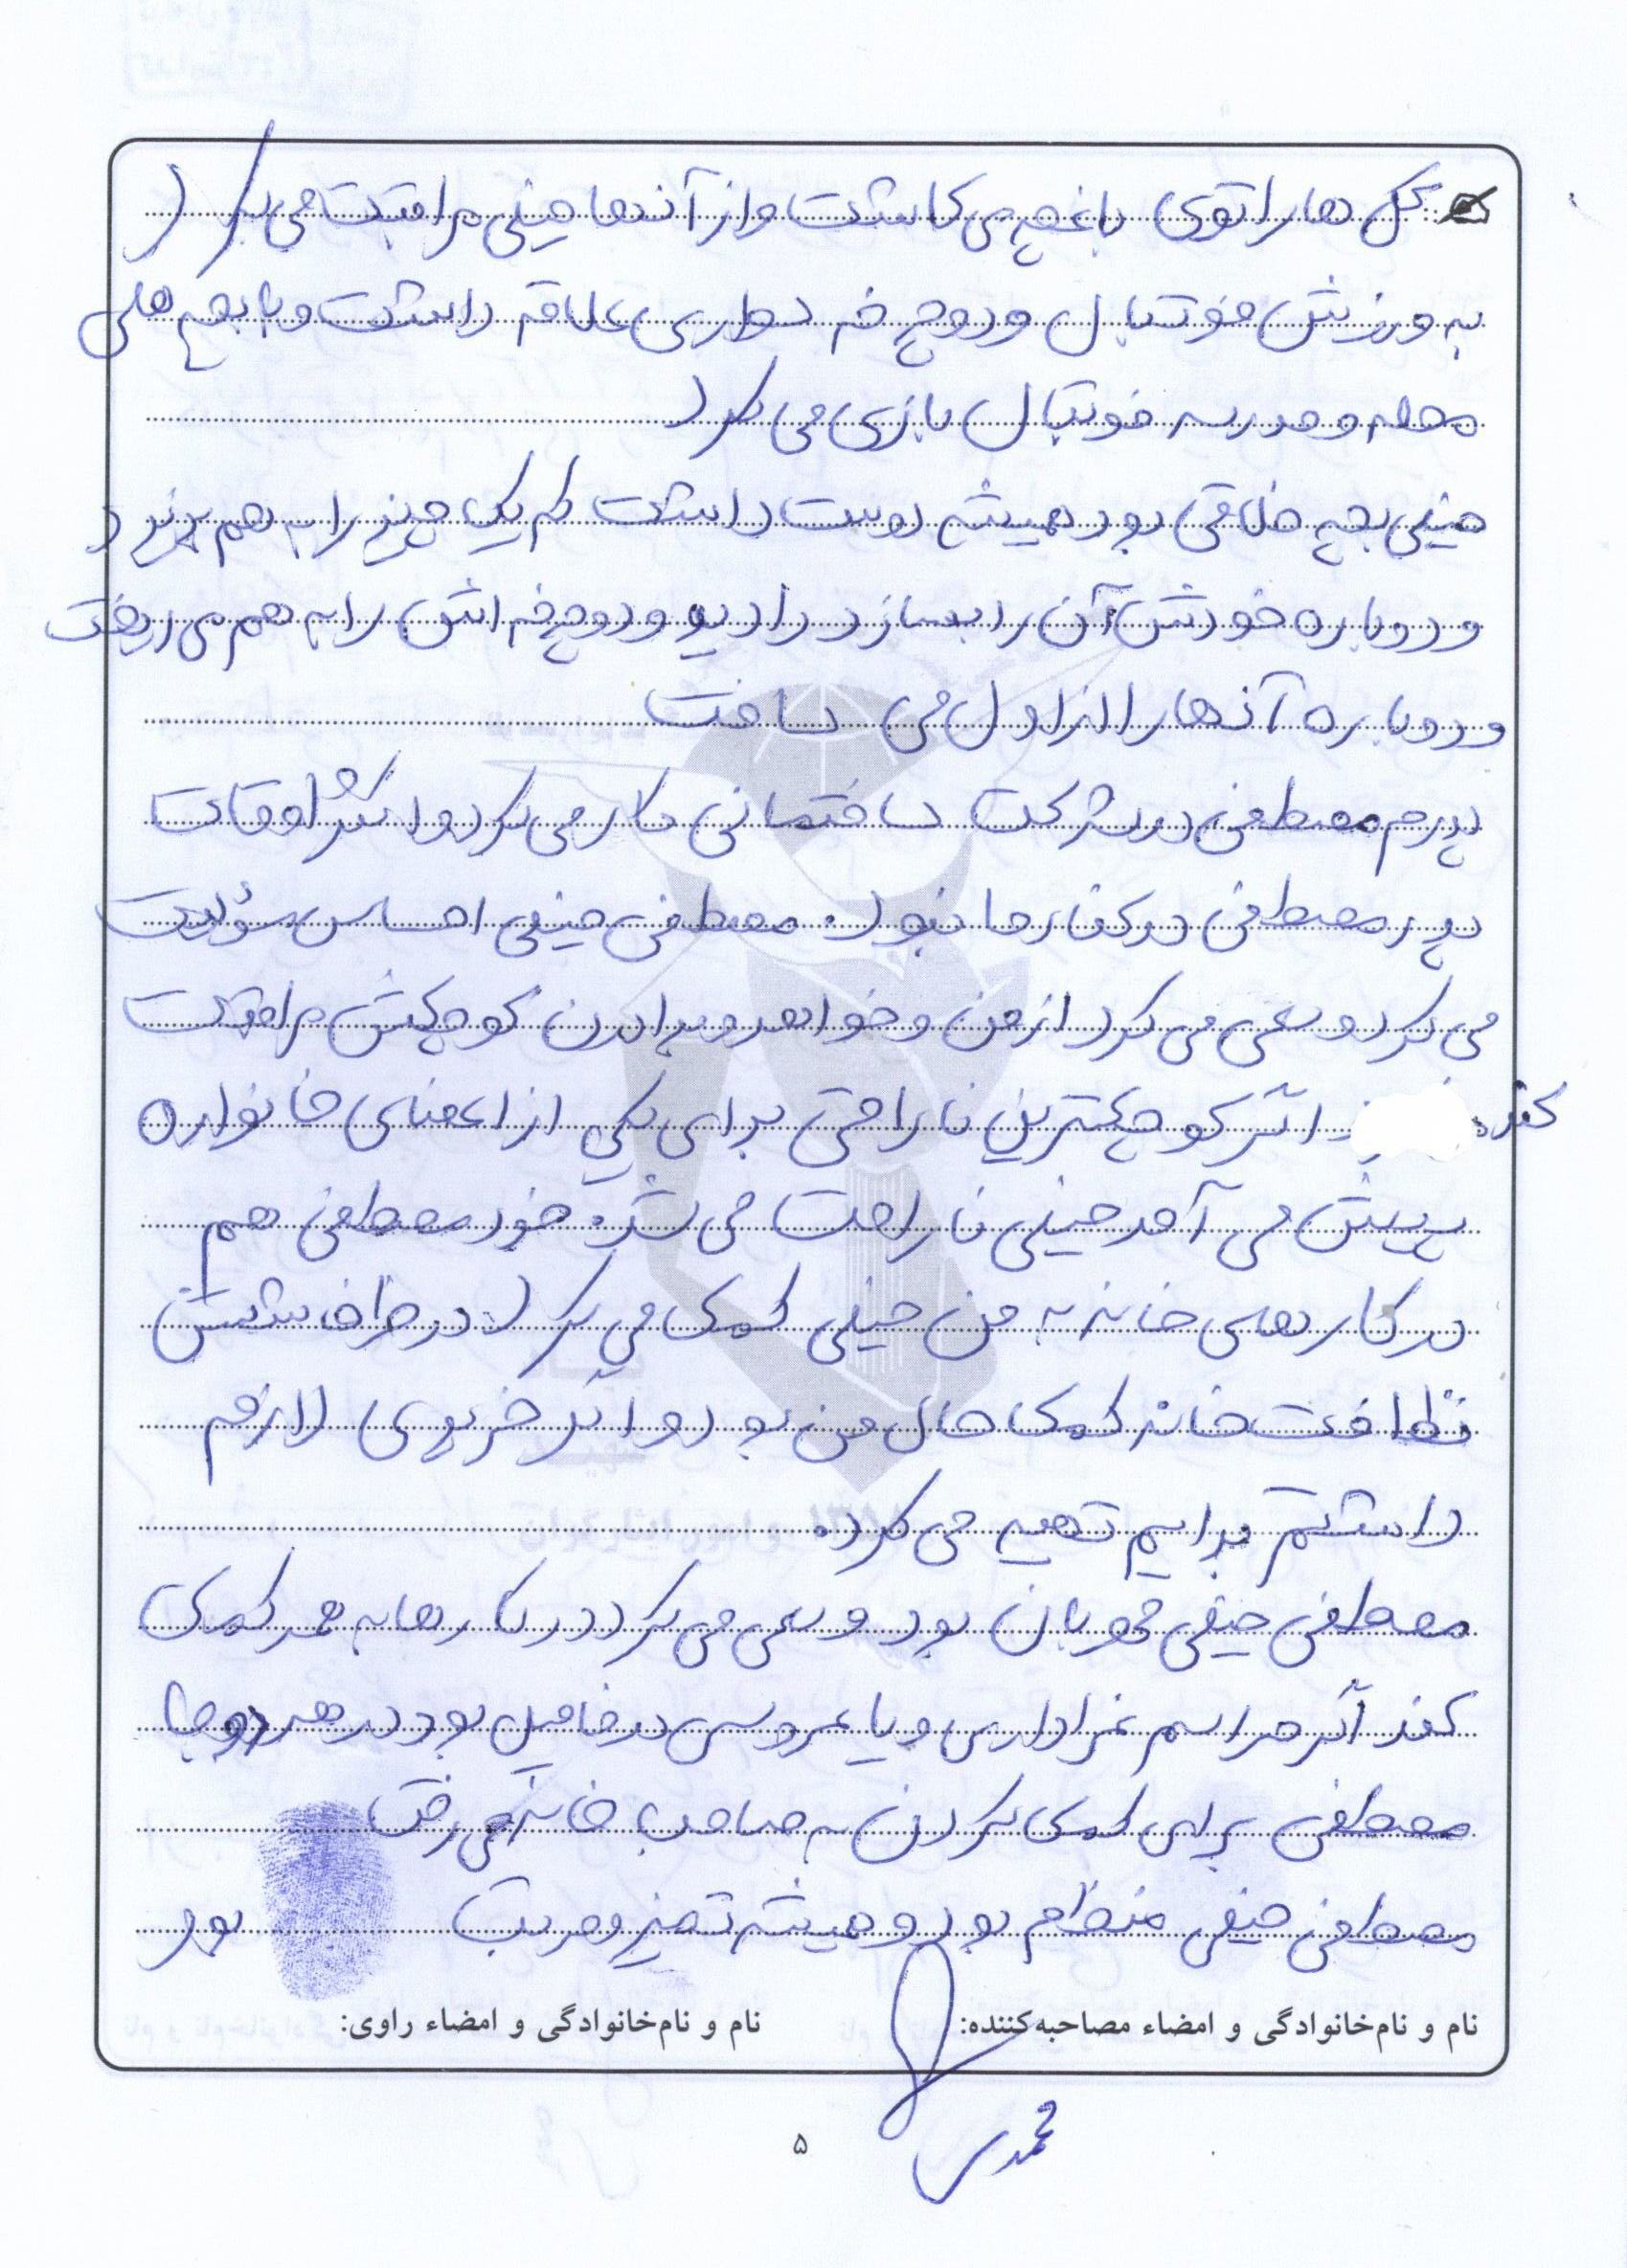 گل ها را توی باغچه می کاشت و از آنها خیلی مراقبت می کرد
به ورزش فوتبال و دوچرخه سواری علاقه داشت و با بچه های
محله و مدرسه فوتبال بازی می کرد
خیلی بچه خلاقی بود همیشه دوست داشت که یک چیز را به هم بریزد
و دوباره خودش آن را بسازد رادیو و دوچرخه اش را به هم می ریخت
و دوباره آنها را از اول می ساخت
پدرم مصطفی در شرکت ساختمانی کار می کرد و اکثر اوقات
پدر مصطفی در کنار ما نبود. مصطفی خیلی احساس مسؤلیت
می کرد و سعی می کرد از من و خواهر و برادرن کوچکش مراقبت
کند. اگر کوچکترین ناراحتی برای یکی از اعضای خانواده
پیش می آمد خیلی ناراحت می شد. خود مصطفی هم
در کارهای خانه به من خیلی کمک می کرد. در ظرف شستن
نظافت خانه کمک حال من بود و اگر خریدی لازم
داشتم برایم تهیه می کرد.
مصطفی خیلی مهربان بود و سعی می کرد در کارها به همه کمک
کند اگر مراسم عزاداری و یا عروسی در فامیل بود در هر دو جا
مصطفی برای کمک کردن به صاحب خانه می رفت
مصطفی خیلی منظم بود و همیشه تمیز و مرتب بود
نام و نام‌خانوادگی و امضاء مصاحبه‌کننده: نام و نام‌خانوادگی و امضاء راوی:
محمدی
۵